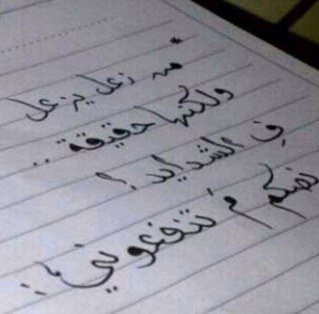 * من زعل يزعل
ولكنها حقيقة ..
في الشدايد ؟
نصكم مَ تنفعوني ؛: